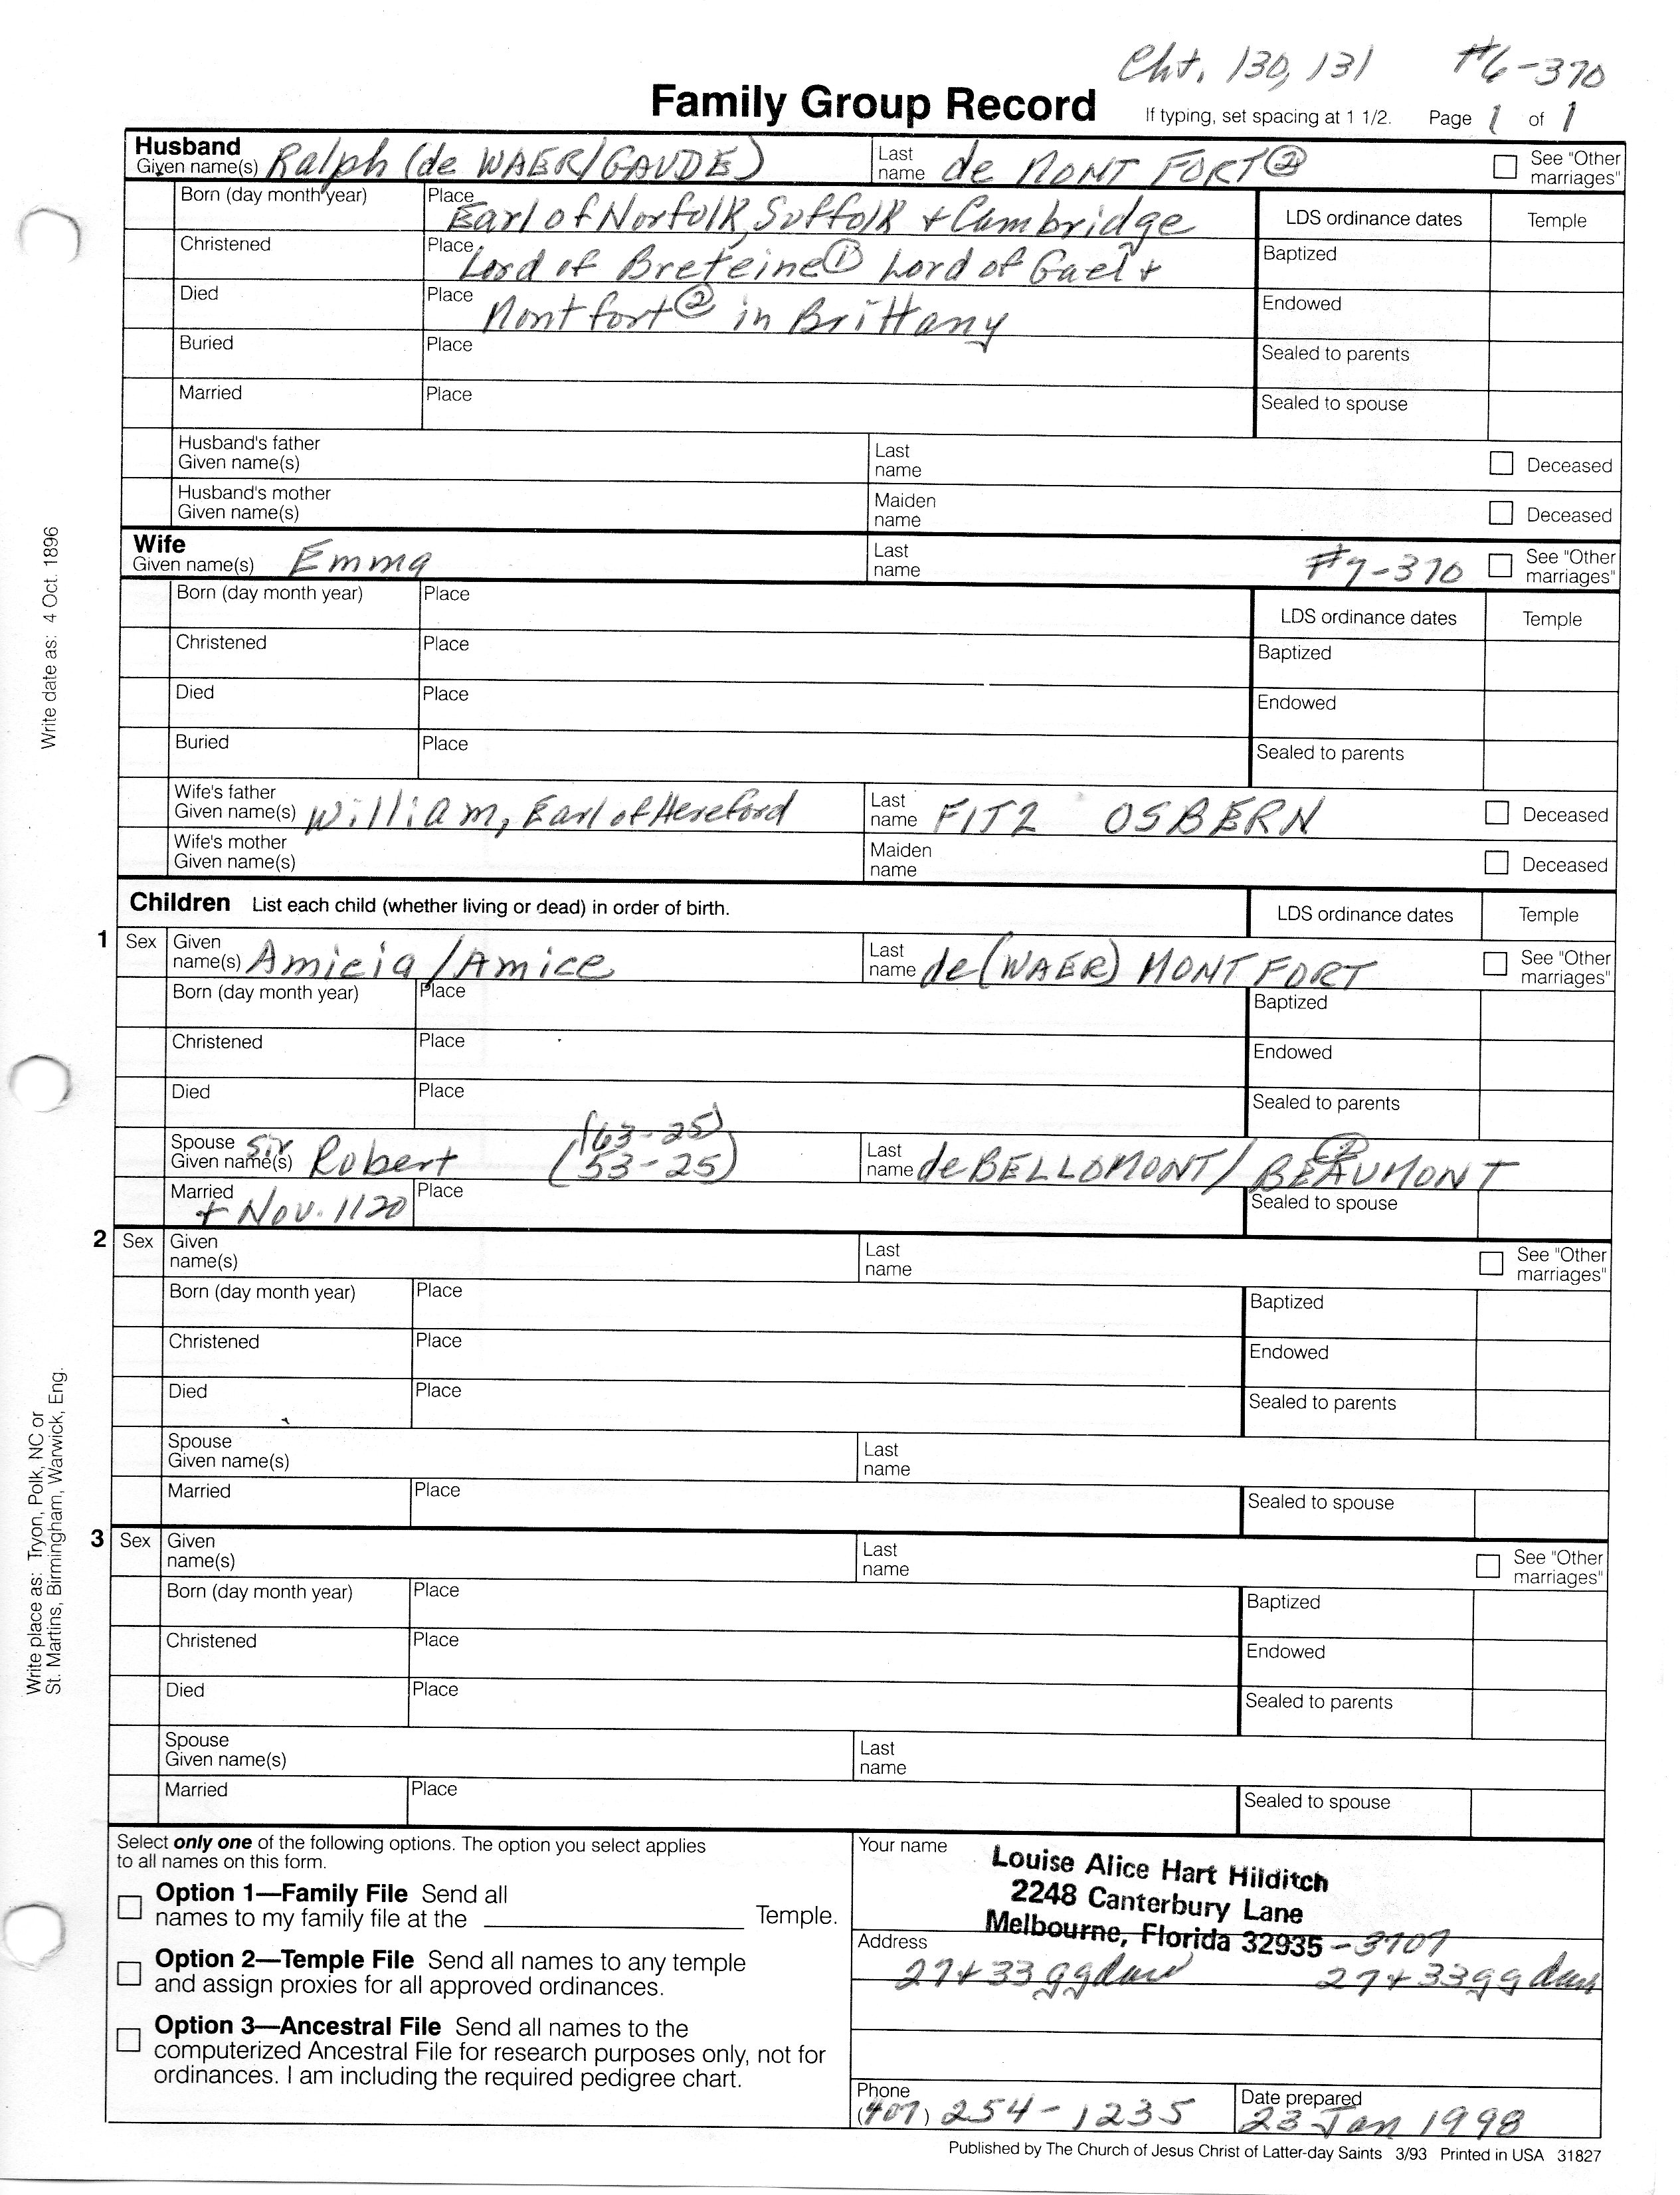 Cht. 130, 131 #6-370
Family Group Record If typing, set spacing at 1 1/2. Page 1 of 1
Husband
Given name(s) Ralph (de WAER/GAUDE) Last name de MONT FORT ② See "Other marriages"
Born (day month year) Place Earl of Norfolk, Suffolk + Cambridge LDS ordinance dates Temple
Christened Place Lord of Breteine ① Lord of Gael + Baptized
Died Place Montfort ② in Brittany Endowed
Buried Place Sealed to parents
Married Place Sealed to spouse
Husband's father Given name(s) Last name Deceased
Husband's mother Given name(s) Maiden name Deceased
Wife
Given name(s) Emma Last name #7-370 See "Other marriages"
Born (day month year) Place LDS ordinance dates Temple
Christened Place Baptized
Died Place Endowed
Buried Place Sealed to parents
Wife's father Given name(s) William, Earl of Hereford Last name FITZ OSBERN Deceased
Wife's mother Given name(s) Maiden name Deceased
Children List each child (whether living or dead) in order of birth. LDS ordinance dates Temple
1 Sex Given name(s) Amicia/Amice Last name de (WAER) MONT FORT See "Other marriages"
Born (day month year) Place Baptized
Christened Place Endowed
Died Place Sealed to parents
(63-25)
Spouse Given name(s) Sir Robert (53-25) Last name de BELLOMONT/BEAUMONT ②
Married + Nov. 1120 Place Sealed to spouse
2 Sex Given name(s) Last name See "Other marriages"
Born (day month year) Place Baptized
Christened Place Endowed
Died Place Sealed to parents
Spouse Given name(s) Last name
Married Place Sealed to spouse
3 Sex Given name(s) Last name See "Other marriages"
Born (day month year) Place Baptized
Christened Place Endowed
Died Place Sealed to parents
Spouse Given name(s) Last name
Married Place Sealed to spouse
Write date as: 4 Oct. 1896
Write place as: Tryon, Polk, NC or
St. Martins, Birmingham, Warwick, Eng.
Select only one of the following options. The option you select applies
to all names on this form.
Option 1—Family File Send all
names to my family file at the Temple.
Option 2—Temple File Send all names to any temple
and assign proxies for all approved ordinances.
Option 3—Ancestral File Send all names to the
computerized Ancestral File for research purposes only, not for
ordinances. I am including the required pedigree chart.
Your name Louise Alice Hart Hilditch
2248 Canterbury Lane
Melbourne, Florida 32935-3707
Address 27+33 ggdau 27+33 gg dau
Phone (407) 254-1235 Date prepared 23 Jan 1998
Published by The Church of Jesus Christ of Latter-day Saints 3/93 Printed in USA 31827